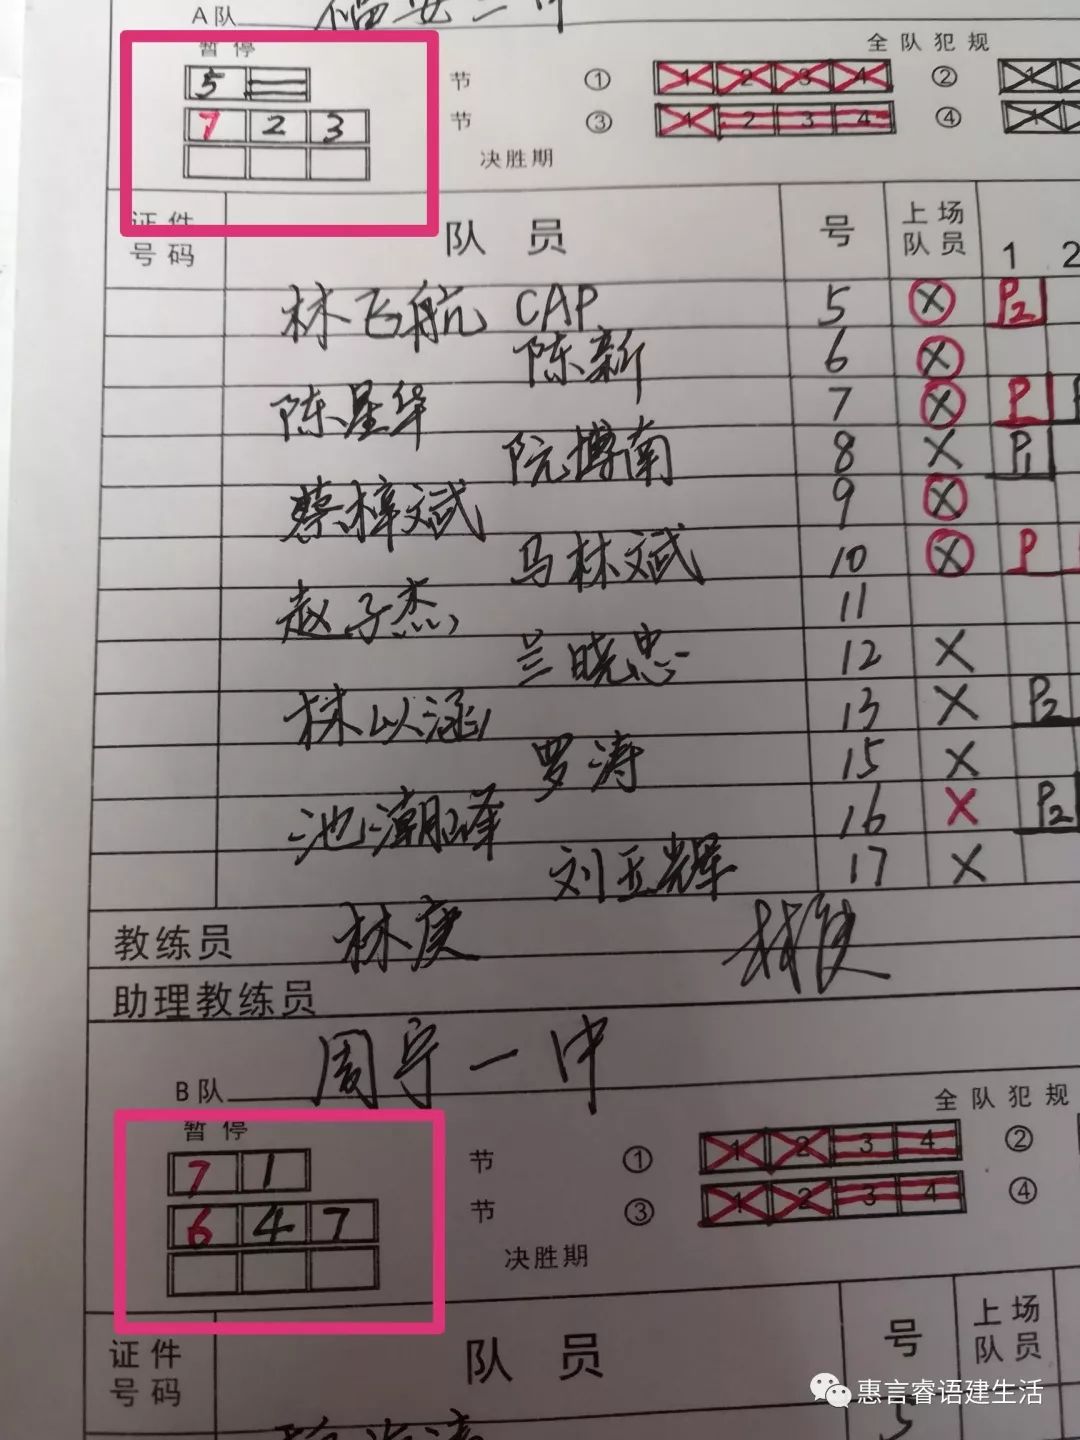 A队 福安二中
暂停 全队犯规
5 节 ① 1 2 3 4 ②
7 2 3 节 ③ 1 2 3 4 ④
决胜期
证件号码 队员 号 上场队员 1 2
林飞航 CAP 5 X P2
陈新 6 X
陈星华 7 X P
阮博南 8 X P1
蔡梓斌 9 X
马林斌 10 X P
赵子杰 11
兰晓忠 12 X
林以涵 13 X P2
罗涛 15 X
池潮峰 16 X P2
刘玉辉 17 X
教练员 林庚
助理教练员
B队 周宁一中
暂停 全队犯规
7 1 节 ① 1 2 3 4 ②
6 4 7 节 ③ 1 2 3 4 ④
决胜期
证件号码 队员 号 上场队员
5
惠言睿语建生活